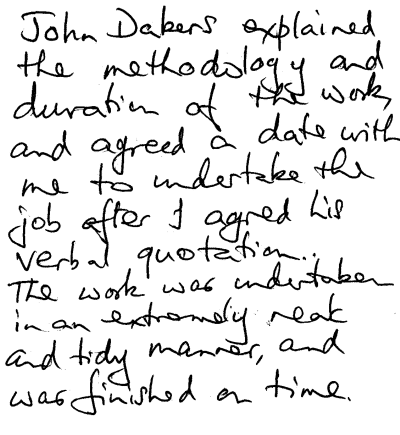 John Dakers explained
the methodology and
duration of the work,
and agreed a date with
me to undertake the
job after I agreed his
verbal quotation..
The work was undertaken
in an extremely neat
and tidy manner, and
was finished on time.